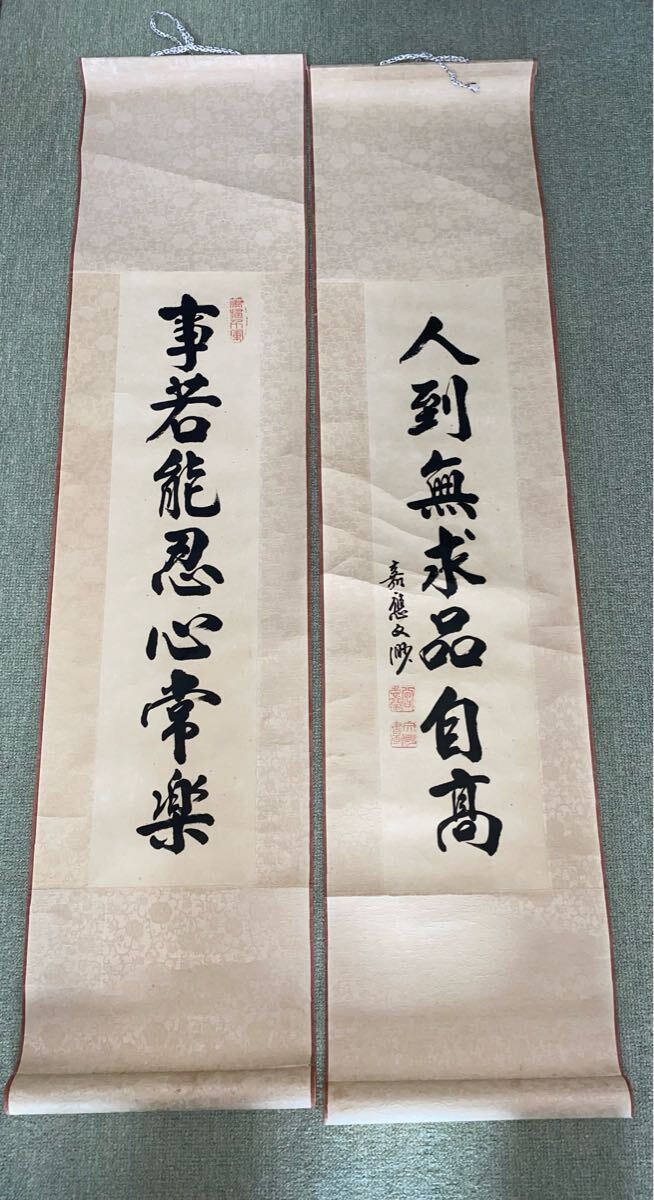 人到無求品自高
嘉應文
事若能忍心常楽